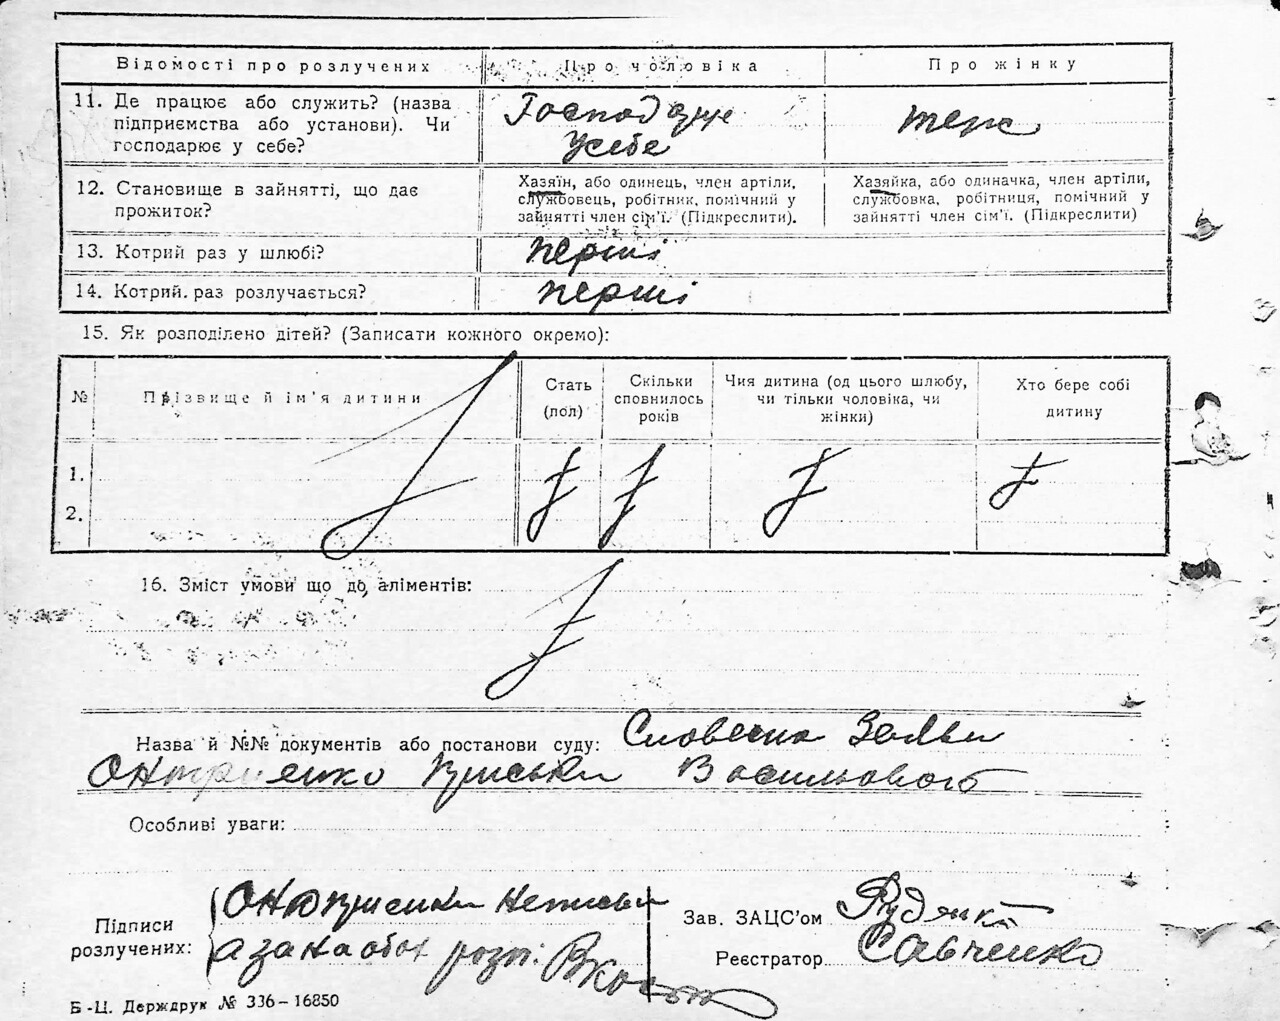 Відомості про розлучених
Про чоловіка
Про жінку
11. Де працює або служить? (назва
підприємства або установи). Чи
господарює у себе?
Господарує
у себе
теж
12. Становище в зайнятті, що дає
прожиток?
Хазяїн, або одинець, член артіли,
службовець, робітник, помічний у
зайнятті член сім'ї. (Підкреслити).
Хазяйка, або одиначка, член артіли,
службовка, робітниця, помічний у
зайнятті член сім'ї. (Підкреслити)
13. Котрий раз у шлюбі?
перші
14. Котрий раз розлучається?
перші
15. Як розподілено дітей? (Записати кожного окремо):
№
Прізвище й ім'я дитини
Стать
(пол)
Скільки
сповнилось
років
Чия дитина (од цього шлюбу,
чи тільки чоловіка, чи
жінки)
Хто бере собі
дитину
1.
2.
16. Зміст умови що до аліментів:
Назва й №№ документів або постанови суду: Словесна Заяви
Василького
Особливі уваги:
Підписи
розлучених:
а за на обох розп:
Зав. ЗАЦС'ом Руденко
Реєстратор Савченко
Б-Ц. Держдрук № 336-16850